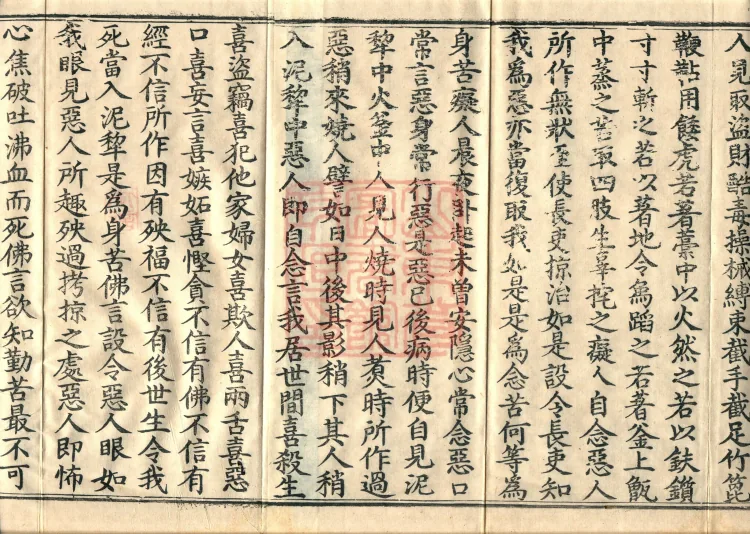 人見取盜財酷毒操械縛束截手截足竹篦
鞭䵟用餧虎若著藁中以火然之若以鈇鑕
寸寸斬之若以著地令爲蹈之若著釜上甑
中蒸之若取四肢生辜挓之癡人自念惡人
所作無狀至使長吏掠治如是設令長吏知
我爲惡亦當復取我如是是爲念苦何等爲
身苦癡人晨夜卧起未曾安隱心常念惡口
常言惡身常行惡是惡已後病時便自見泥
犁中火釜中人見人燒時見人煑時所作過
惡稍來燒人譬如日中後其影稍下其人稍
入泥犁中惡人即自念言我居世間喜殺生
喜盜竊喜犯他家婦女喜欺人喜兩舌喜惡
口喜妄言喜嫉妬喜慳貪不信有佛不信有
經不信所作因有殃福不信有後世生令我
死當入泥犁是為身苦佛言設令惡人眼如
我眼見惡人所趣殃過拷掠之處惡人即怖
心焦破吐沸血而死佛言欲知勤苦最不可